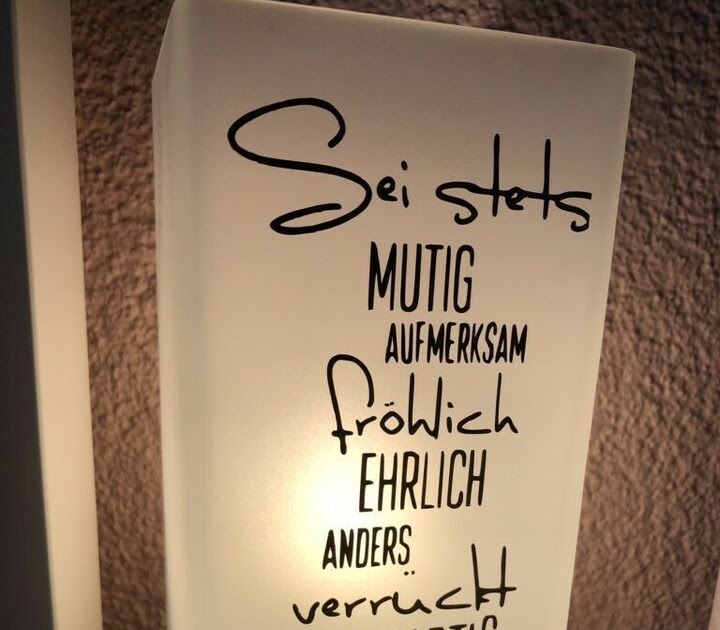 Sei stets
MUTIG
AUFMERKSAM
fröhlich
EHRLICH
ANDERS
verrückt